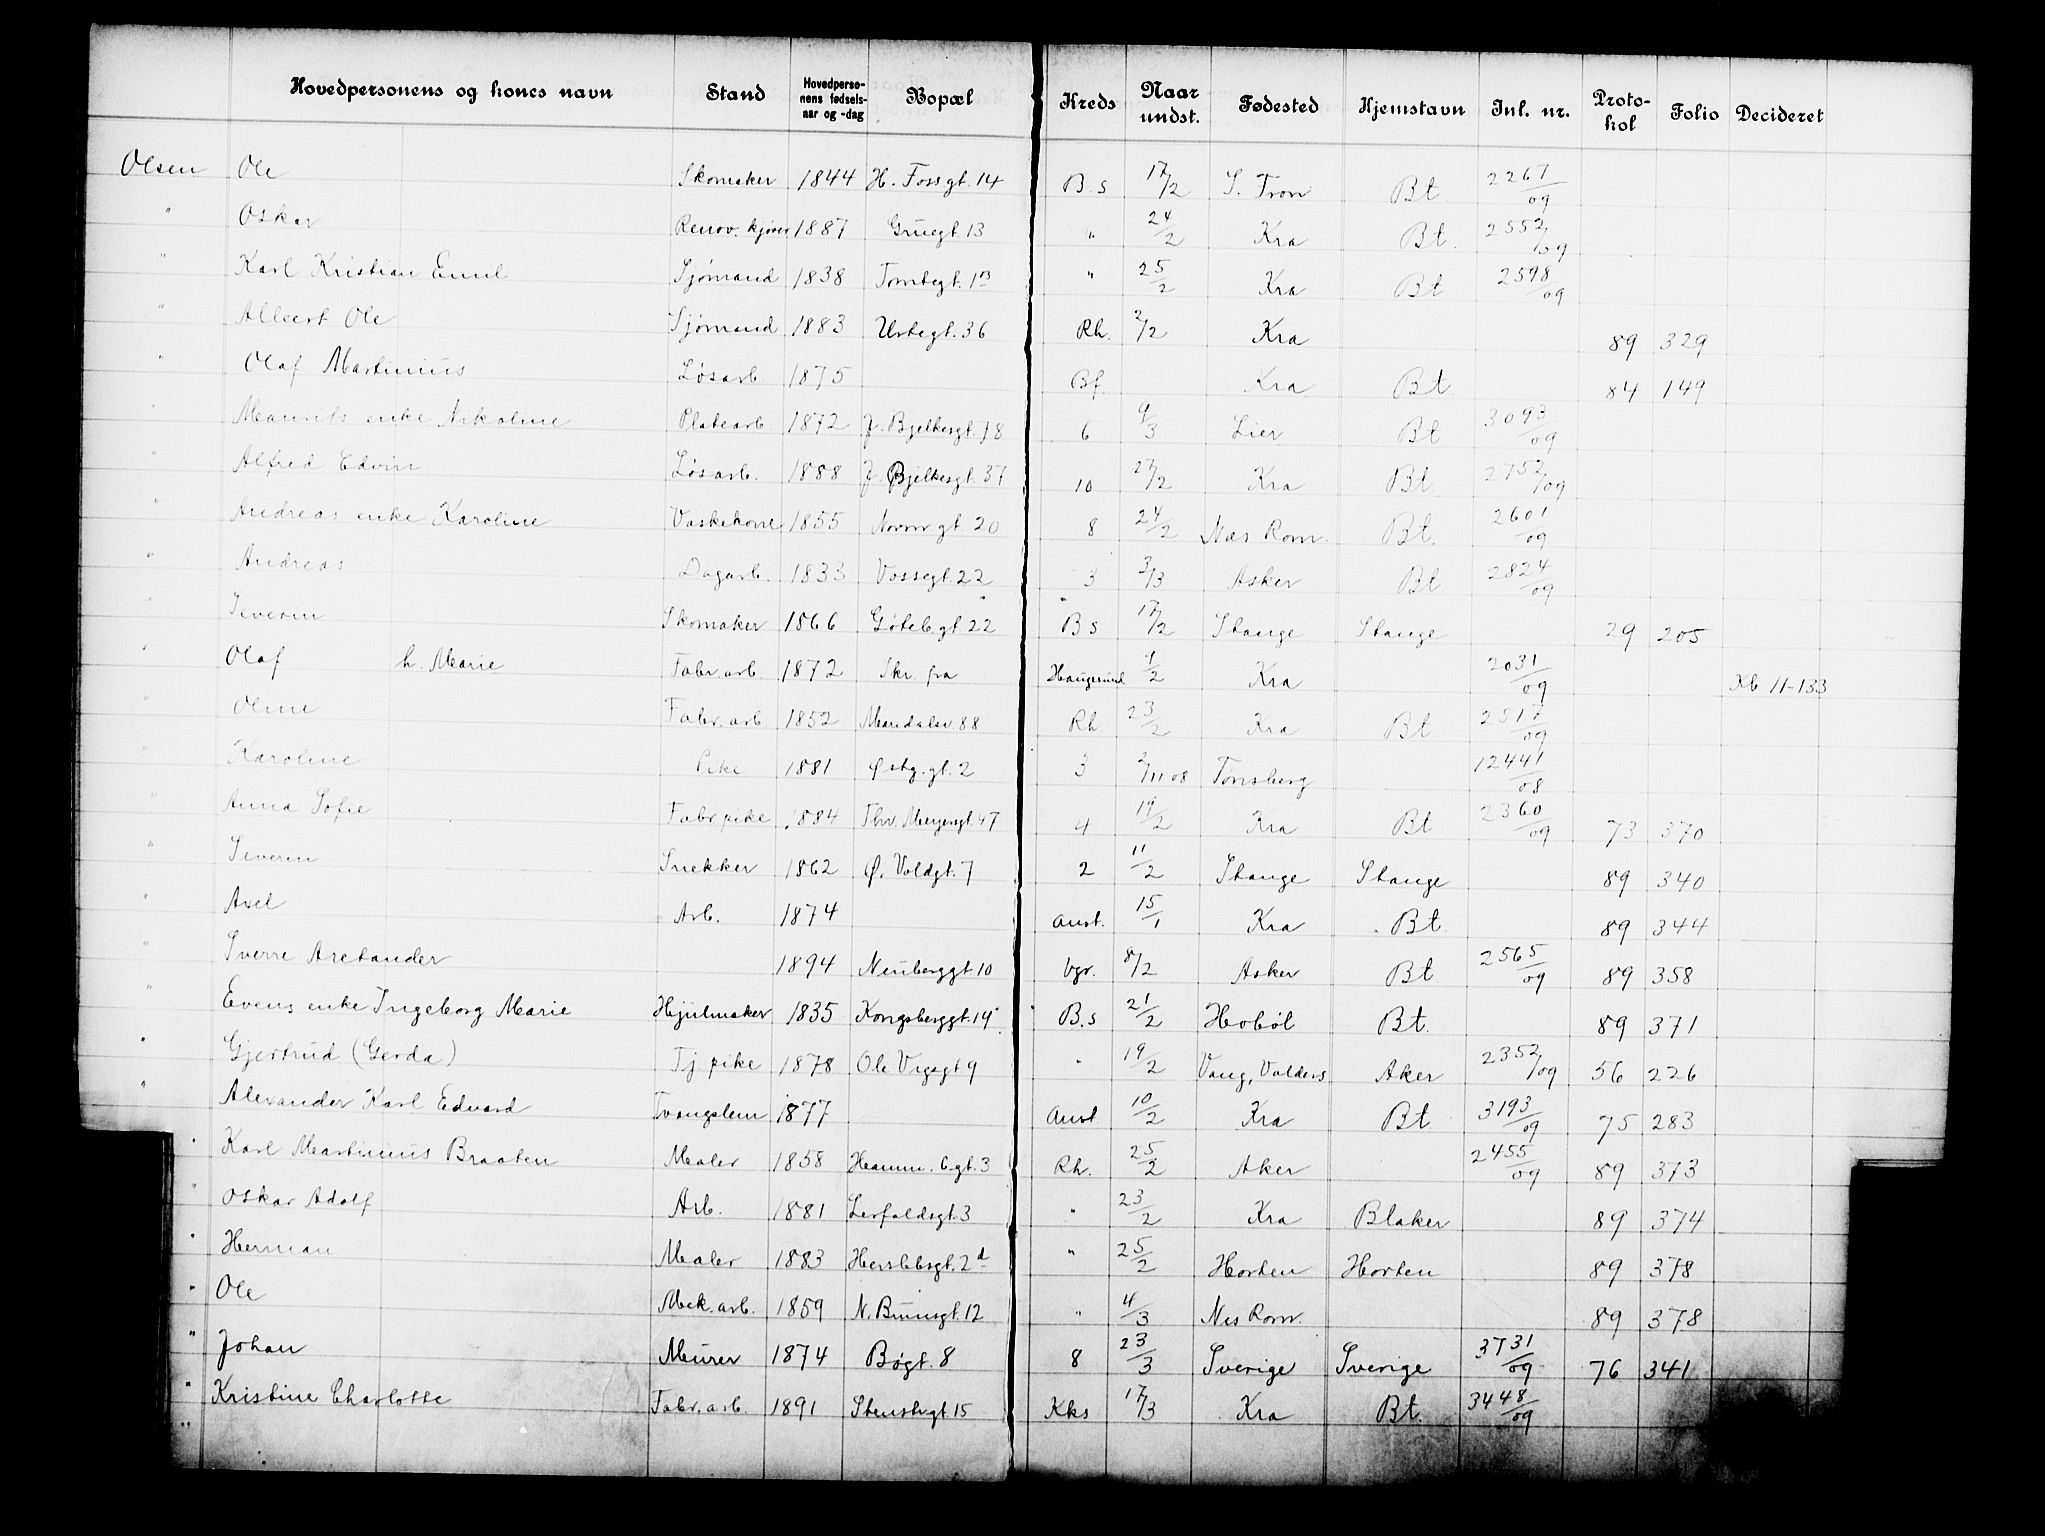 Hovedpersonens og kones navn Stand Hovedpersonens fødselsaar og -dag Bopæl Kreds Naar undst. Fødested Hjemstavn Inl. nr. Protokol Folio Decideret
Olsen Ole Skomaker 1844 H. Fossgt. 14 B.s 17/2 S. Fron Bt 2267/09
" Oskar Renov. kjører 1887 Gruegt. 13 " 24/2 Kra Bt. 2552/09
" Karl Kristian Emil Sjømand 1838 Tomtegt. 1B " 25/2 Kra Bt 2598/09
" Albert Ole Sjømand 1883 Urtegt. 36 Rh. 2/2 Kra 89 329
" Olaf Martinius Løsarb. 1875 Bf. Kra Bt. 84 149
" Maurits enke Nikoline Platearb. 1872 J. Bjelkesgt. 78 6 9/3 Lier Bt 3093/09
" Alfred Edvin Løsarb. 1888 J. Bjelkesgt. 37 10 27/2 Kra Bt. 2752/09
" Andreas enke Karoline Vaskekone 1855 Normgt 20 8 24/2 Nes Rom. Bt. 2601/09
" Andreas Dagarb. 1833 Vossegt. 22 3 3/3 Asker Bt 2824/09
" Severin Skomaker 1866 Gøteb.gt 22 B s 17/2 Stange Stange 29 205
" Olaf h. Marie Fabr.arb. 1872 Skr. fra Haugesund 1/2 Kra 2031/09 Kb 11-133
" Oline Fabr.arb 1852 Maridalsv. 88 Rh 23/2 Kra Bt 2517/09
" Karoline Pike 1881 Østg.gt. 2 3 2/11 08 Tønsberg 12441/08
" Anna Sofie Fabr pike 1884 Thv. Meyersgt. 47 4 19/2 Kra Bt 2360/09 73 370
" Severin Snekker 1862 Ø. Voldgt. 7 2 11/2 Stange Stange 89 340
" Axel Arb. 1874 Anst. 15/1 Kra Bt. 89 344
" Sverre Aretander 1894 Neuberggt 10 Vgr. 8/2 Asker Bt 2565/09 89 358
" Evens enke Ingeborg Marie Hjulmaker 1835 Kongsberggt. 14 B.s 21/2 Hobøl Bt. 89 371
" Gjertrud (Gerda) Tj. pike 1878 Ole Vigsgt 9 " 19/2 Vang, Valders Aker 2352/09 56 226
" Alexander Karl Edvard Tvangslem 1877 Anst 10/2 Kra Bt. 3193/09 75 283
" Karl Martinius Braaten Maler 1858 Hamm.b.gt. 3 Rh. 25/2 Aker 2455/09 89 373
" Oskar Adolf Arb. 1881 Lerfaldsgt. 3 " 23/2 Kra Blaker 89 374
" Herman Maler 1883 Herslebsgt. 2d " 25/2 Horten Horten 89 378
" Ole Mek. arb. 1859 N. Bruunsgt. 12 " 4/3 Nes Rom. 89 378
" Johan Murer 1874 Bøgt. 8 8 23/3 Sverige Sverige 3731/09 76 341
" Kristine Charlotte Fabr.arb. 1891 Stenstrgt 15 Kks 17/3 Kra Bt. 3448/09
"